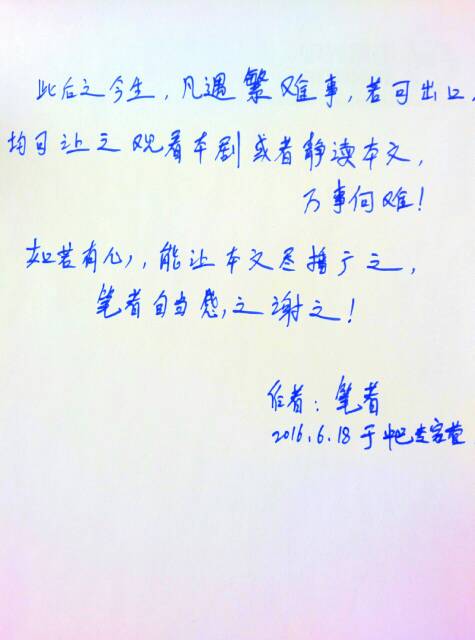 此后之今生，凡遇繁难事，若可出口，
均可让之观看本剧或者静读本文，
万事何难！
如若有心，能让本文尽播广之，
笔者自当感之谢之！
作者：笔者
2016.6.18于